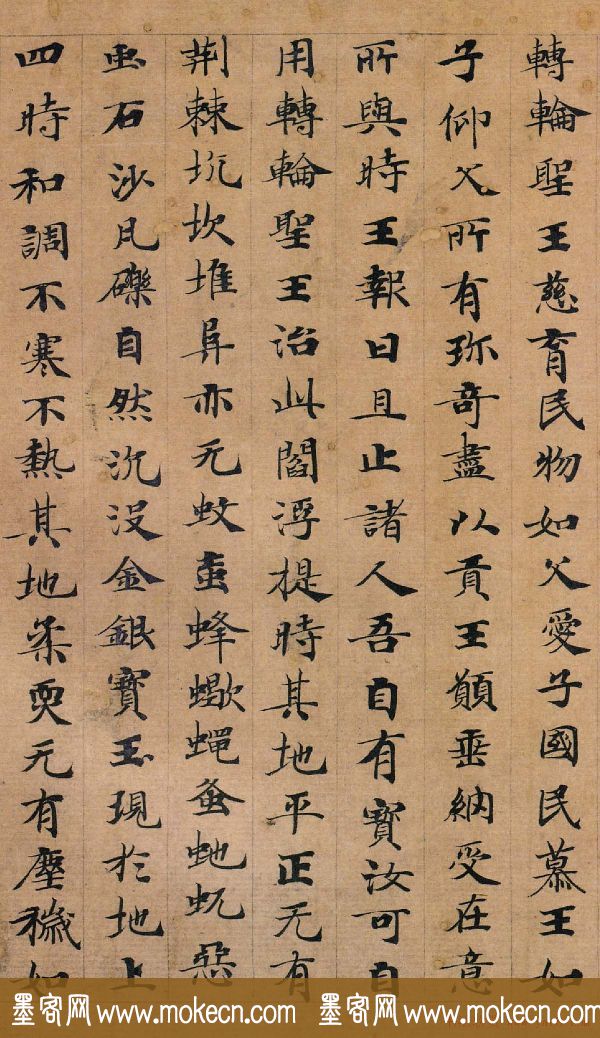 轉輪聖王慈育民物如父愛子國民慕王如
子仰父所有珎奇盡以貢王願垂納受在意
所與時王報曰且止諸人吾自有寶汝可自
用轉輪聖王治此閻浮提時其地平正无有
荆棘坑坎堆阜亦无蚊䖟蜂蠍蠅蚤虵虺惡
虫石沙瓦礫自然沉没金銀寶玉現於地上
四時和調不寒不熱其地柔耎无有塵穢如
墨客网 www.mokecn.com 墨客网 www.mokecn.com